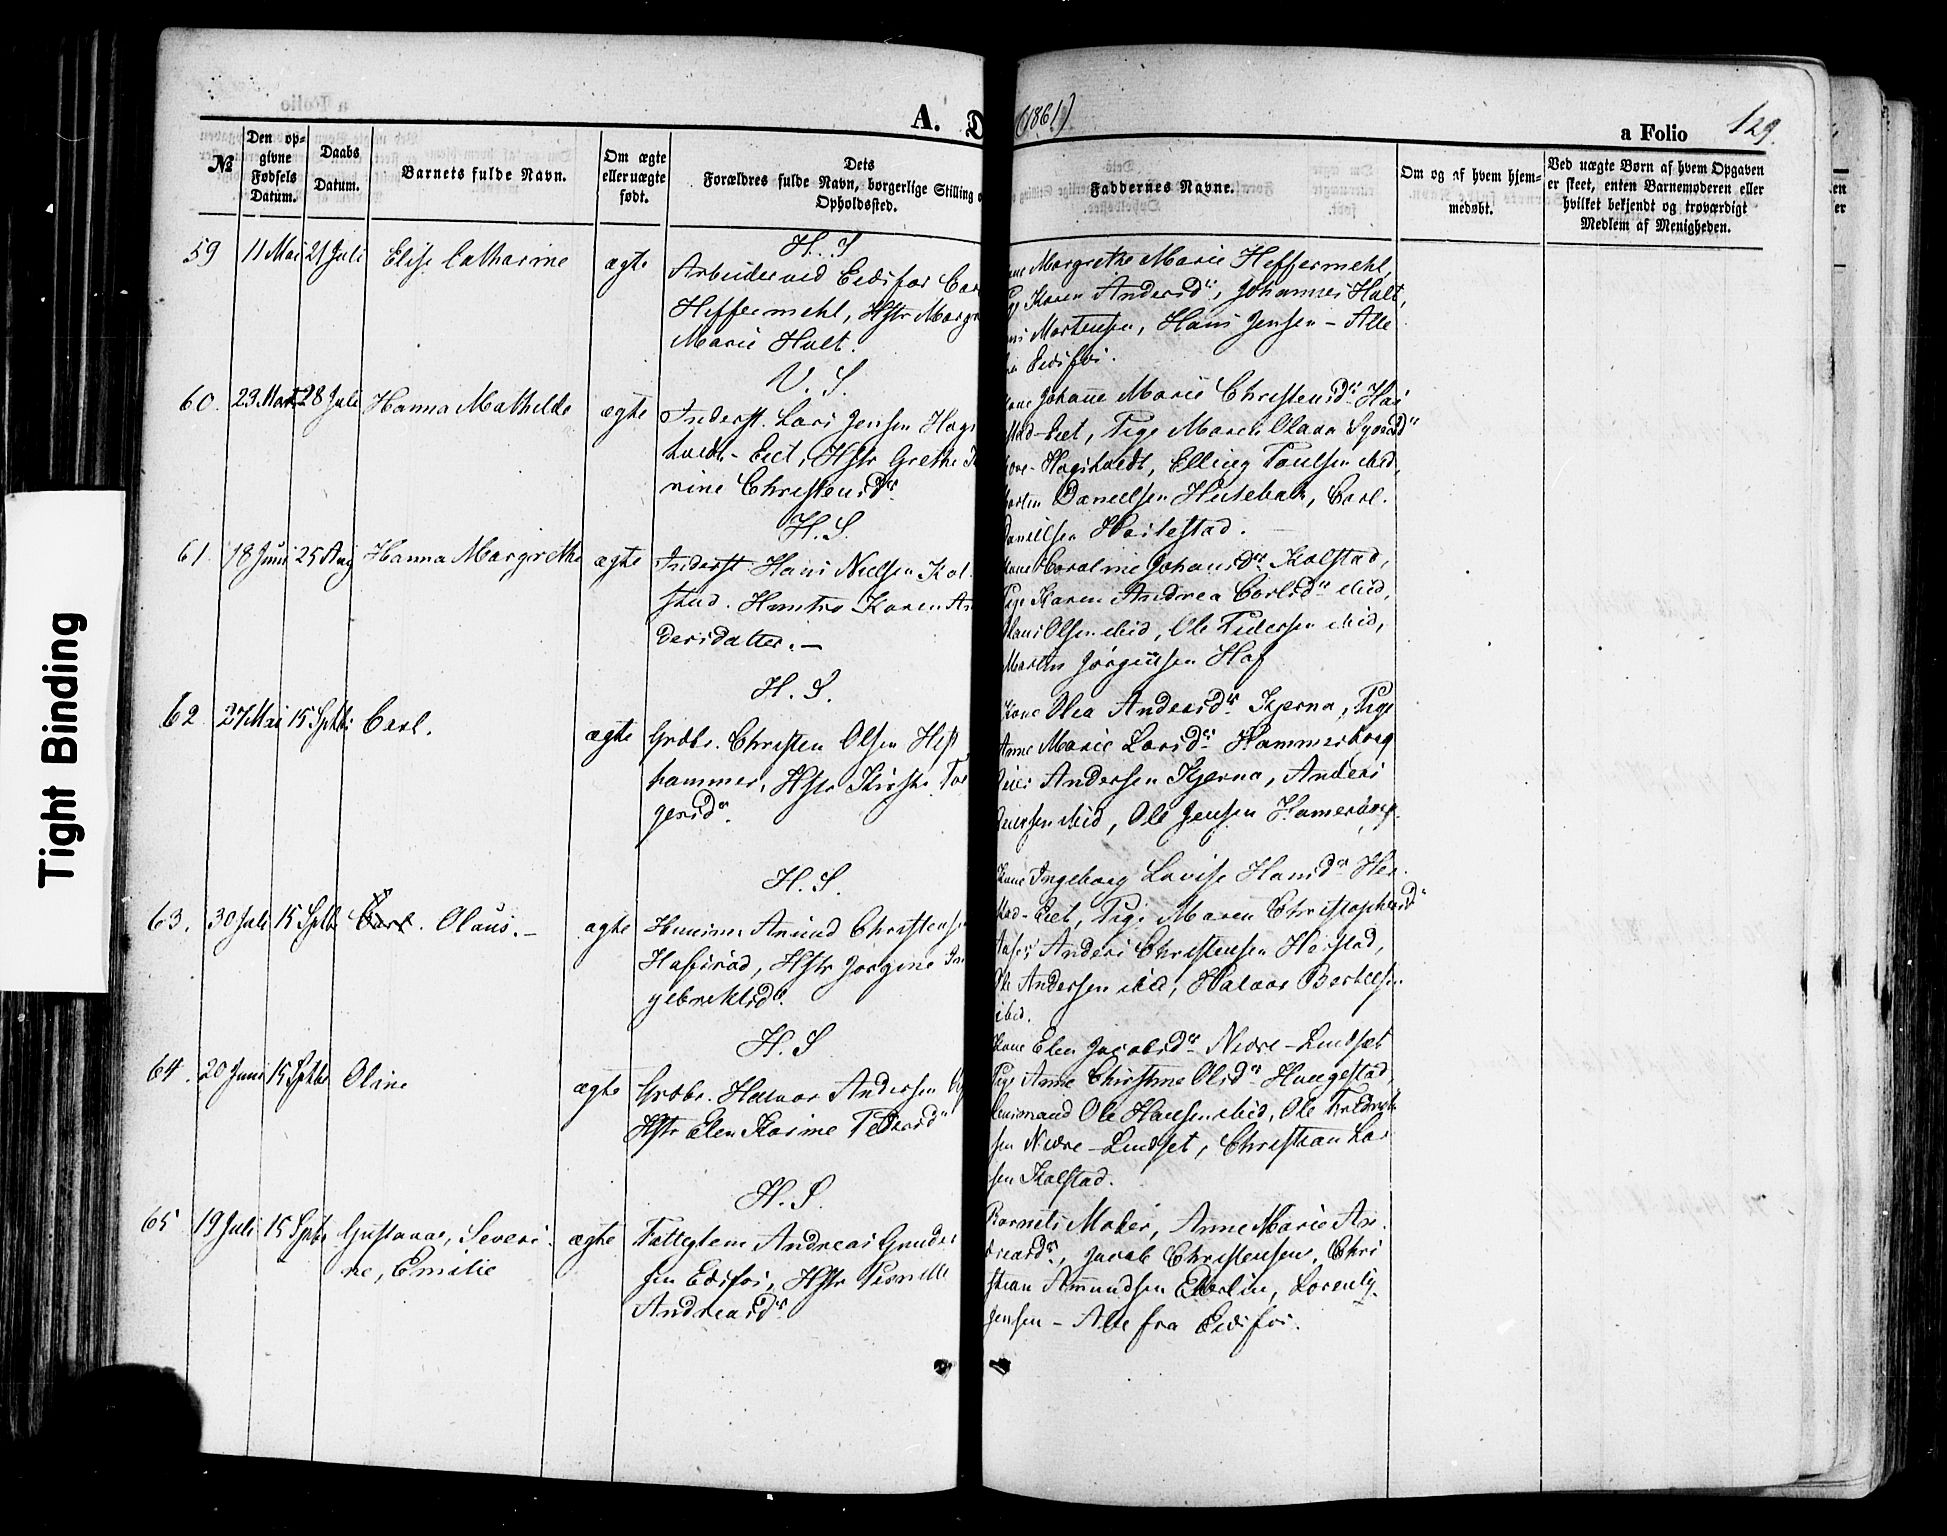 Tight Binding
A. D
(1861)
a Folio
129.
№
Den op-
givne
Fødsels
Datum.
Daabs
Datum.
Barnets fulde Navn.
Om ægte
eller uægte
født.
Dets
Forældres fulde Navn, borgerlige Stilling o
Opholdssted.
Faddernes Navne.
Om og af hvem hjem-
medøbt.
Ved uægte Børn af hvem Opgaven
er skeet, enten Barnemoderen eller
hvilket bekjendt og troværdigt
Medlem af Menigheden.
59
11 Mai
21 Juli
Elise Catharine
ægte
H. S
Arbeider ved Eidsfos Car
Heffermehl, Hstr Margr
Marie Holt.
Margrethe Marie Heffermehl,
Karen Andersdr, Johannes Holt,
Mortensen, Hans Jensen - Alle
Eidsfos.
60.
23 Marts
28 Juli
Hanna Mathilde
ægte
V. S.
Inderst. Lars Jensen Hogs
hvedt - Eiet, Hstr Grethe
rine Christensdr
Johanne Marie Christensdr
Eiet, Pige Maren Olava
Hogshvedt, Elling Poulsen ibid,
Danielsen Hulebak, Carl
61.
18 Juni
25 Aug
Hanna Margrethe
ægte
H. S.
Inderst Hans Nielsen Kol
stad. Hustro Karen An
dersdatter. —
Caroline Johansdr Kolstad,
Pige Karen Andrea Carlsdr ibid,
Hans Olsen ibid, Ole Pedersen ibid,
Martin Jørgensen Hof
62
27 Mai
15 Sptbr
Carl.
ægte
H. S.
Grdbr. Christen Olsen Hest
hammer, Hstr Kirstie Tor
gersdr.
Kone Olea Andersdr Kjerna, Pige
Anne Marie Larsdr Hammersborg
Andersen Kjerna, Anders
ibid, Ole Jensen Hamersborg.
63.
30 Juli
15 Sptb
Carl. Olaus. —
ægte
H. S.
Husmd Amund Christensen
Hafsrød, Hstr Jorgine In
gebrektsdr.
Kone Ingeborg Lovise Hansdr
Eiet, Pige Maren Christophersdr
Anders Christensen
Ole Andersen ibid, Halvor Bertelsen
ibid.
64.
20 Juni
15 Sptbr
Oline
ægte
H. S
Grdbr. Halvor Andersen
Hstr Elen Karine Pedersdr
Kone Elen Jacobsdr Nedre - Lindset
Pige Anne Christine Olsdr Haugestad,
Ole Hansen ibid, Ole Fredrik
sen Nedre - Lindset, Christian Lar
sen Kolstad.
65
19 Juli
15 Sptbr
Gustava, Severi
ne, Emilie
ægte
H. S.
Fattiglem Andreas Gunder
sen Eidsfos, Hstr Pernille
Andreasdr
Barnets Moder, Anne Marie An
dreasdr, Jacob Christensen, Chri
stian Amundsen Eberlin, Lorentz
Jensen - Alle fra Eidsfos.